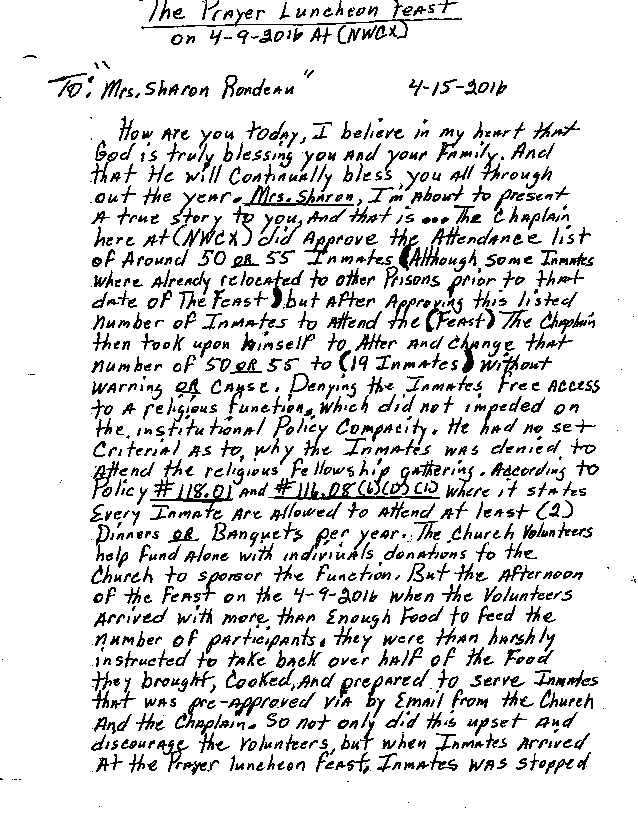 The Prayer Luncheon Feast
on 4-9-2016 At (NWCX)
To: "Mrs. Sharon Rondeau" 4-15-2016
How Are you today, I believe in my heart that
God is truly blessing you And your Family. And
that He will Continually bless you All through
out the year. Mrs. Sharon, I'm About to present
A true story to you, And that is... The Chaplain
here At (NWCX) did Approve the Attendance list
of Around 50 OR 55 Inmates (Although Some Inmates
where Already relocated to other Prisons prior to that
date of The Feast) but After Approving this listed
Number of Inmates to Attend the (Feast) The Chaplain
then took upon himself to Alter and Change that
Number of 50 OR 55 to (19 Inmates) Without
Warning OR Cause. Denying the Inmates Free Access
to A religious function, which did not impeded on
the institutional Policy Compacity. He had no set
Criterial As to, why the Inmates was denied to
Attend the religious Fellowship gathering. According to
Policy #118.01 And #116.08(b)(D)(1) where it states
Every Inmate Are Allowed to Attend At least (2)
Dinners OR Banquets per year. The Church Volunteers
help Fund Alone with indiviuals donations to the
Church to sponsor the Function. But the Afternoon
of the Feast on the 4-9-2016 when the Volunteers
Arrived with more than Enough Food to feed the
number of participants, they were than harshly
instructed to take back over half of the Food
they brought, Cooked, And prepared to serve Inmates
that was pre-Approved via by Email from the Church
And the Chaplain. So not only did this upset And
discourage the Volunteers, but when Inmates Arrived
At the Prayer luncheon Feast, Inmates was stopped